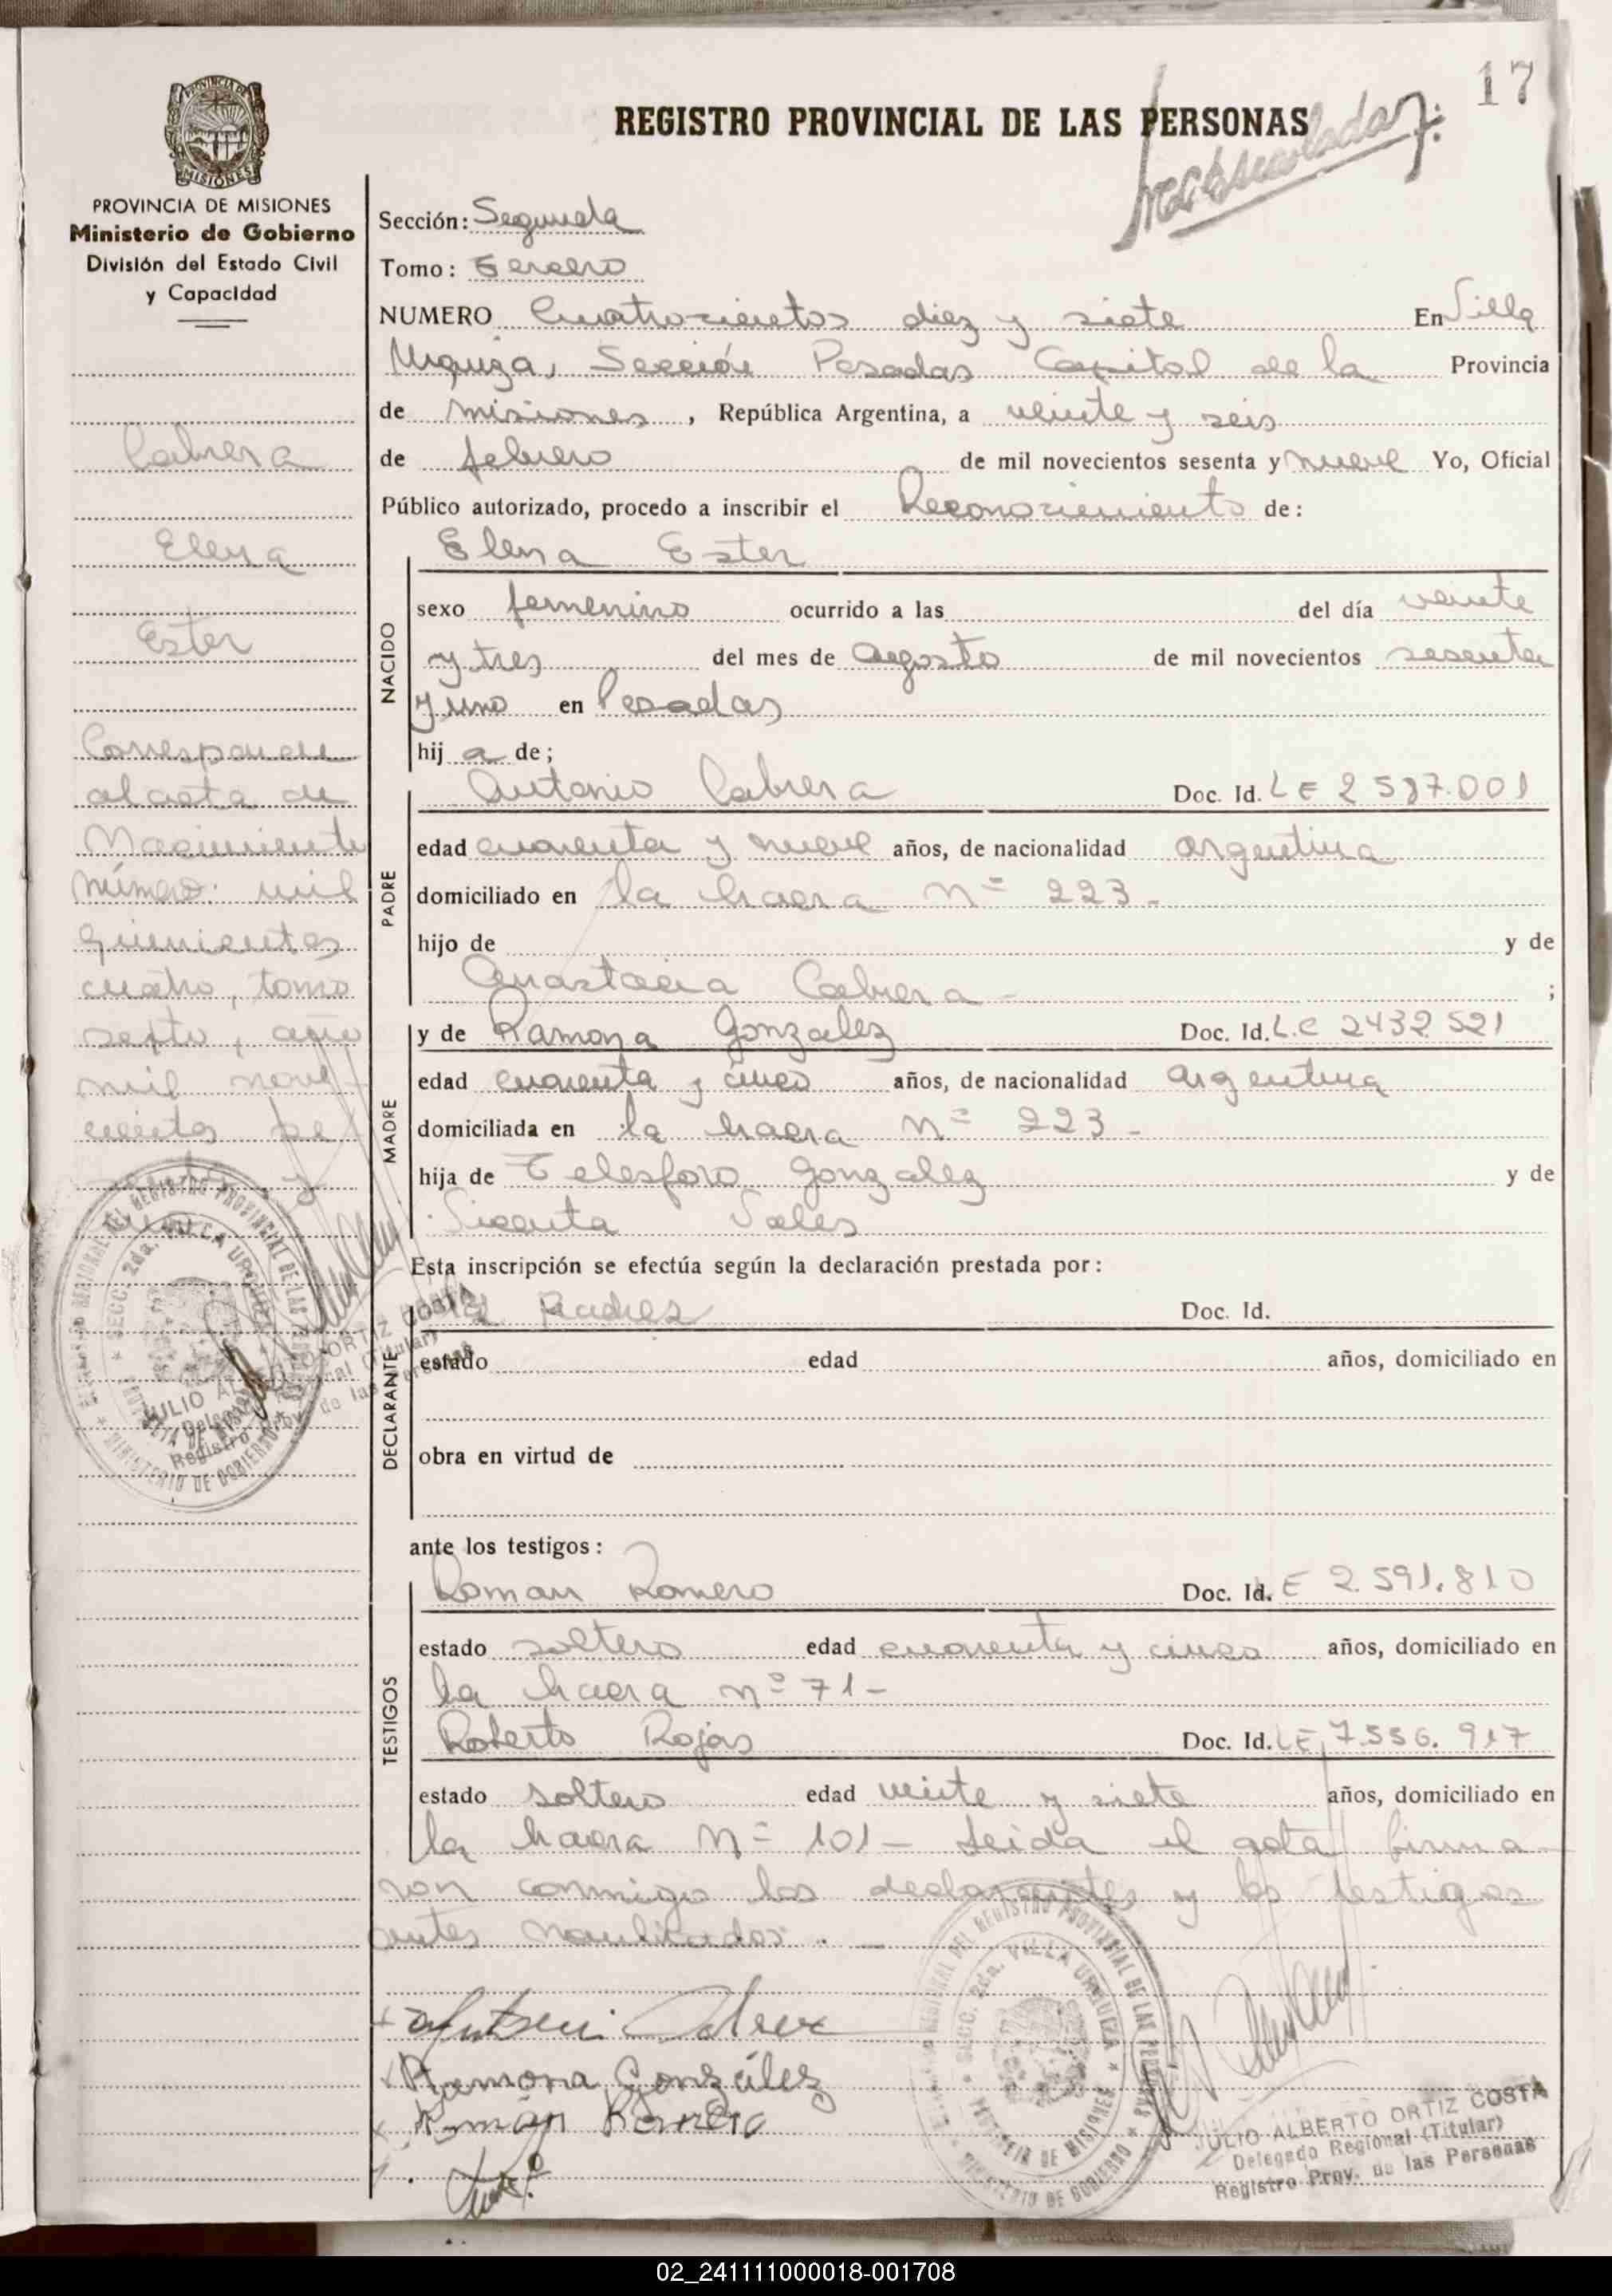 17
REGISTRO PROVINCIAL DE LAS PERSONAS
PROVINCIA DE MISIONES
MISIONES
PROVINCIA DE MISIONES
Ministerio de Gobierno
División del Estado Civil
y Capacidad
Cabrera
Elena
Ester
Corresponde
al acta de
Nacimiento
número: mil
quinientos
cuatro, tomo
septo, año
mil nove-
cientos se
y
Sección: Segunda
Tomo: Tercero
NUMERO Cuatrocientos diez y siete En Villa
Urquiza, Sección Posadas Capital de la Provincia
de misiones, República Argentina, a veinte y seis
de febrero de mil novecientos sesenta y nueve Yo, Oficial
Público autorizado, procedo a inscribir el Reconocimiento de:
NACIDO
Elena Ester
sexo femenino ocurrido a las del día veinte
y tres del mes de Agosto de mil novecientos sesenta
y uno en Posadas
hij a de;
PADRE
Antonio Cabrera Doc. Id. LE 2 587.001
edad cuarenta y nueve años, de nacionalidad argentina
domiciliado en la hacra Nº 223-
hijo de y de
Anastacia Cabrera - ;
MADRE
y de Ramona Gonzalez Doc. Id. L.C 2432521
edad cuarenta y cinco años, de nacionalidad argentina
domiciliada en la hacra Nº 223-
hija de Telesforo Gonzalez y de
Sales
Esta inscripción se efectúa según la declaración prestada por:
DECLARANTE
Padres Doc. Id.
estado edad años, domiciliado en
obra en virtud de
ante los testigos:
TESTIGOS
Roman Romero Doc. Id. E 2.591.810
estado soltero edad cuarenta y cinco años, domiciliado en
la hacra nº 71-
Roberto Rojas Doc. Id. LE 7.556.917
estado soltero edad veinte y siete años, domiciliado en
la hacra Nº 101- Leida el acta firma
ron conmigo los declarantes y los testigos
antes
Ramona González
Román Romero
DELEGACION REGIONAL DEL REGISTRO PROVINCIAL DE LAS PERSONAS
SECC. 2da. VILLA URQUIZA
PROVINCIA DE MISIONES
MINISTERIO DE GOBIERNO
JULIO ALBERTO ORTIZ COSTA
Delegado Regional (Titular)
Registro Prov. de las Personas
02_241111000018-001708